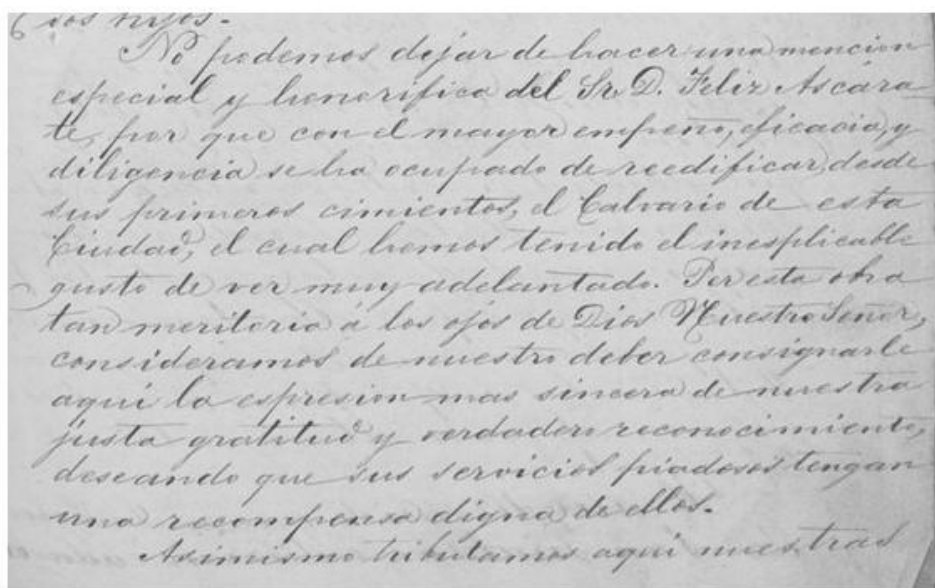 sus hijos.
No podemos dejar de hacer una mencion
especial y honorifica del Sr. D. Feliz Ascára-
te, por que con el mayor empeño, eficacia, y
diligencia se ha ocupado de reedificar, desde
sus primeros cimientos, el Calvario de esta
Ciudad, el cual hemos tenido el inesplicable
gusto de ver muy adelantado. Por esta obra
tan meritoria á los ojos de Dios Nuestro Señor,
consideramos de nuestro deber consignarle
aquí la espresion mas sincera de nuestra
justa gratitud y verdadero reconocimiento,
deseando que sus servicios piadosos tengan
una recompensa digna de ellos.
Asimismo tributamos aquí nuestras